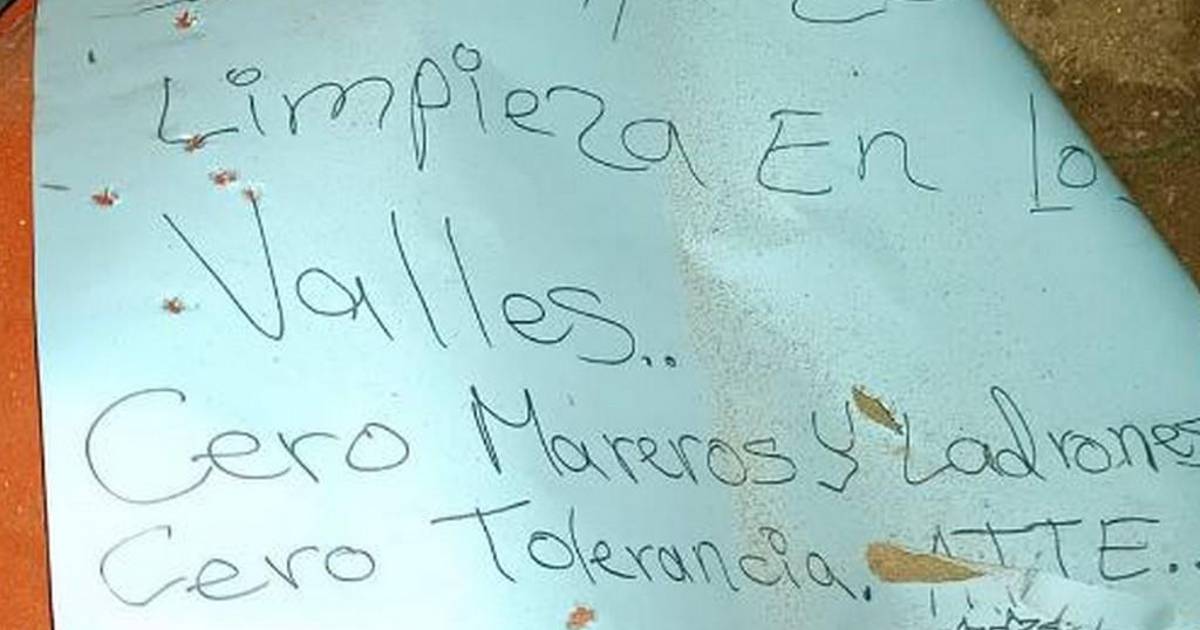 Limpieza En Lo
Valles..
Cero Mareros y Ladrones
Cero Tolerancia. ATTE..